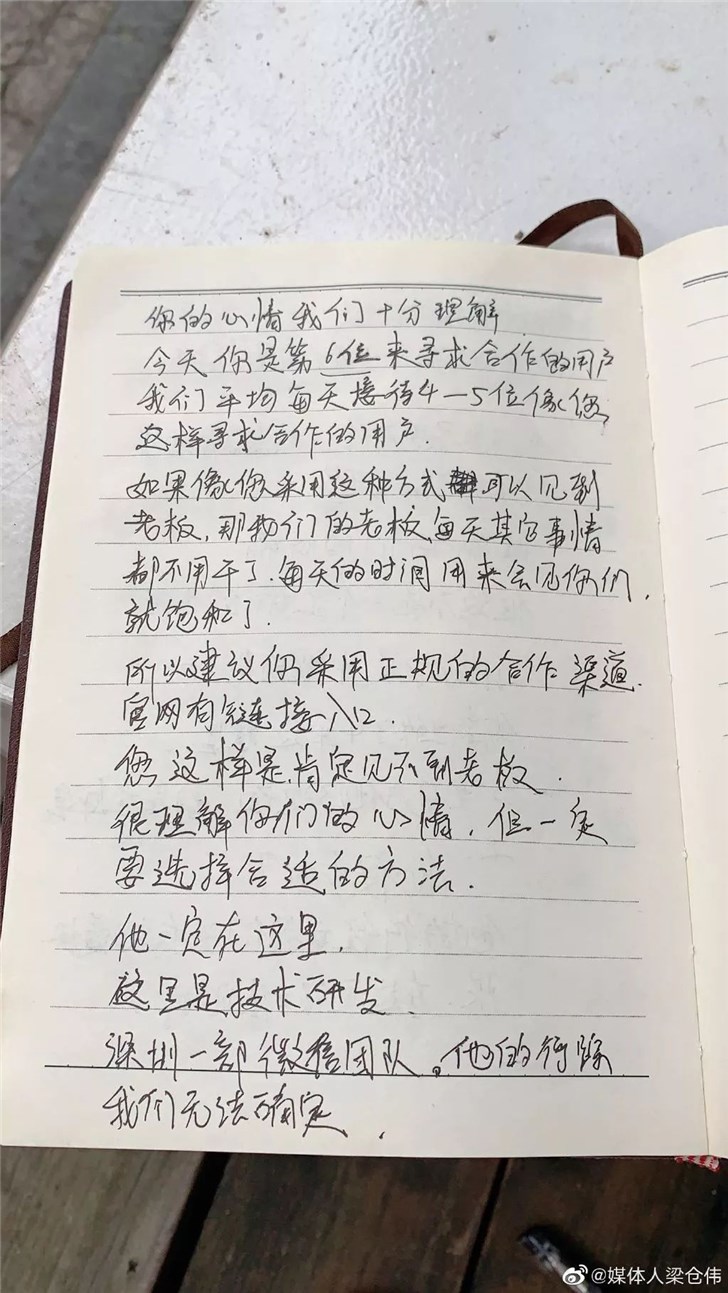 你的心情我们十分理解
今天你是第6位来寻求合作的用户
我们平均每天接待4—5位像您
这样寻求合作的用户.
如果像您采用这种方式可以见到
老板,那我们的老板,每天其它事情
都不用干了.每天的时间用来会见你们,
就饱和了.
所以建议你采用正规的合作渠道.
官网有链接入口.
您这样是肯定见不到老板.
很理解你们的心情,但一定
要选择合适的方法.
他一定在这里.
这里是技术研发.
深圳一部微信团队。他的行踪
我们无法确定.
@媒体人梁仓伟